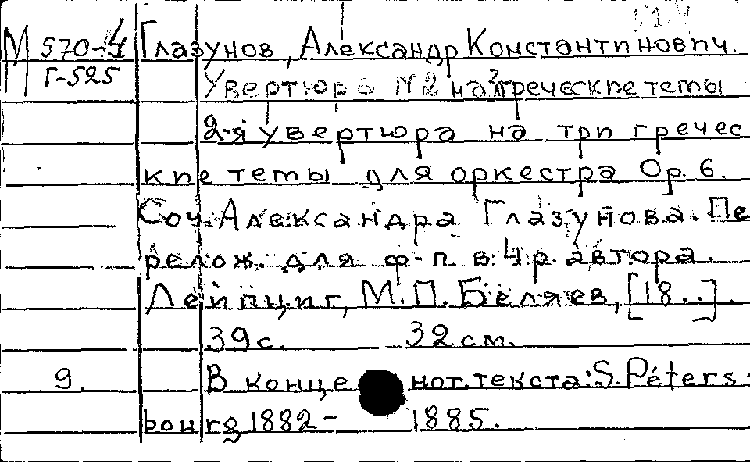 М 570-4 Глазунов, Александр Константинович.
Г-525 Увертюра №2 на 3 греческие темы
2-я увертюра на три гречес
кие темы для оркестра Ор. 6.
Соч. Александра Глазунова. Пе
релож. для ф-п. в 4 р. автора.
Лейпциг, М.П. Беляев, [18..].
39 с. 32 см.
9. В конце нот. текста: S. Péters-
bourg 1882-1885.